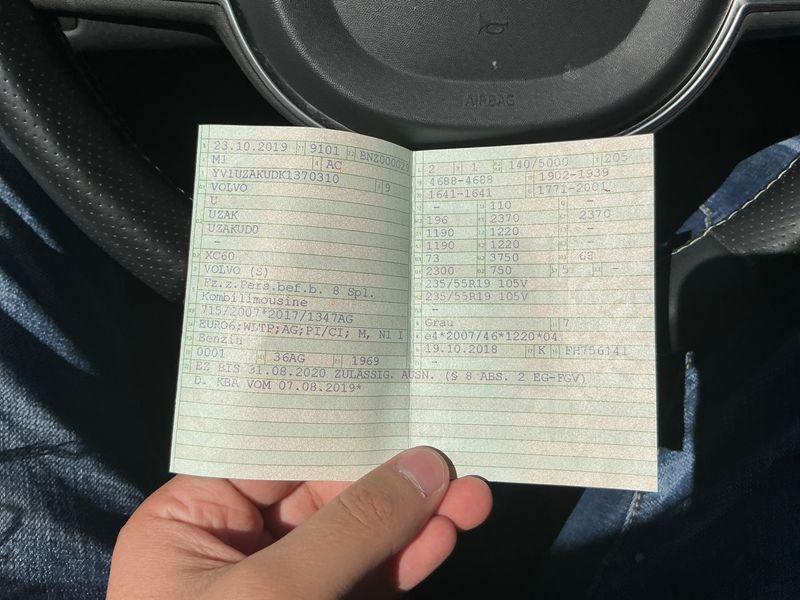 AIRBAG
23.10.2019 9101 BNZ000023
M1 AC
YV1UZAKUDK1370310 9
VOLVO
U
UZAK
UZAKUD0
–
XC60
VOLVO (S)
Fz.z.Pers.bef.b. 8 Spl.
Kombilimousine
715/2007*2017/1347AG
EURO6;WLTP;AG;PI/CI; M, N1 I
Benzin
0001 36AG 1969
EZ BIS 31.08.2020 ZULÄSSIG. AUSN. (§ 8 ABS. 2 EG-FGV)
D. KBA VOM 07.08.2019*
2 1 140/5000 205
4688-4688 1902-1939
1641-1641 1771-2001
– 110 –
196 2370 2370
1190 1220 –
1190 1220 –
73 3750 68
2300 750 5 –
235/55R19 105V
235/55R19 105V
–
Grau 7
e4*2007/46*1220*04
19.10.2018 K FH756141
–